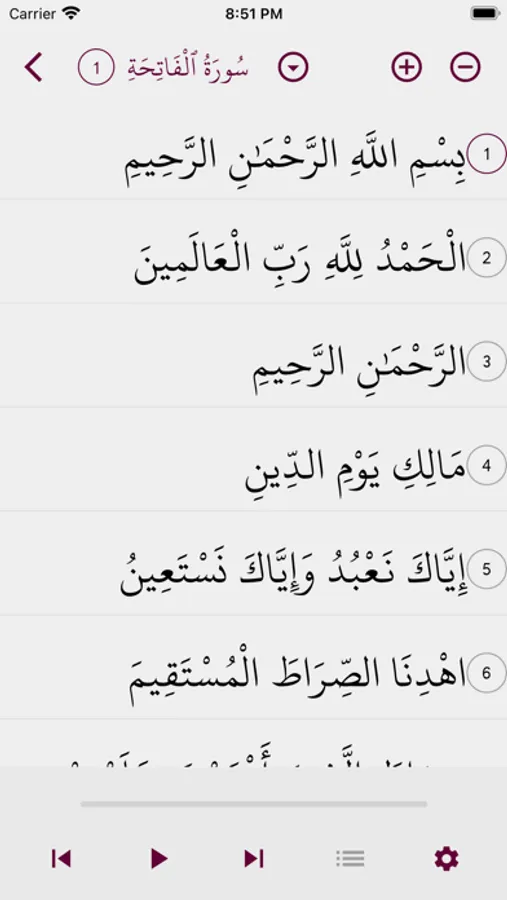 Carrier 8:51 PM
سُورَةُ ٱلْفَاتِحَةِ 1
بِسْمِ اللَّهِ الرَّحْمَـٰنِ الرَّحِيمِ 1
الْحَمْدُ لِلَّهِ رَبِّ الْعَالَمِينَ 2
الرَّحْمَـٰنِ الرَّحِيمِ 3
مَالِكِ يَوْمِ الدِّينِ 4
إِيَّاكَ نَعْبُدُ وَإِيَّاكَ نَسْتَعِينُ 5
اهْدِنَا الصِّرَاطَ الْمُسْتَقِيمَ 6